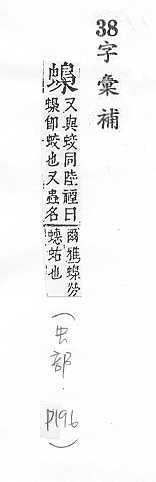 38
字彙補
蟂
又與蛟同陸禋曰
蟂即蛟也又蟲名
爾雅蟂勞
蟪蛄也
(虫部.
P196)